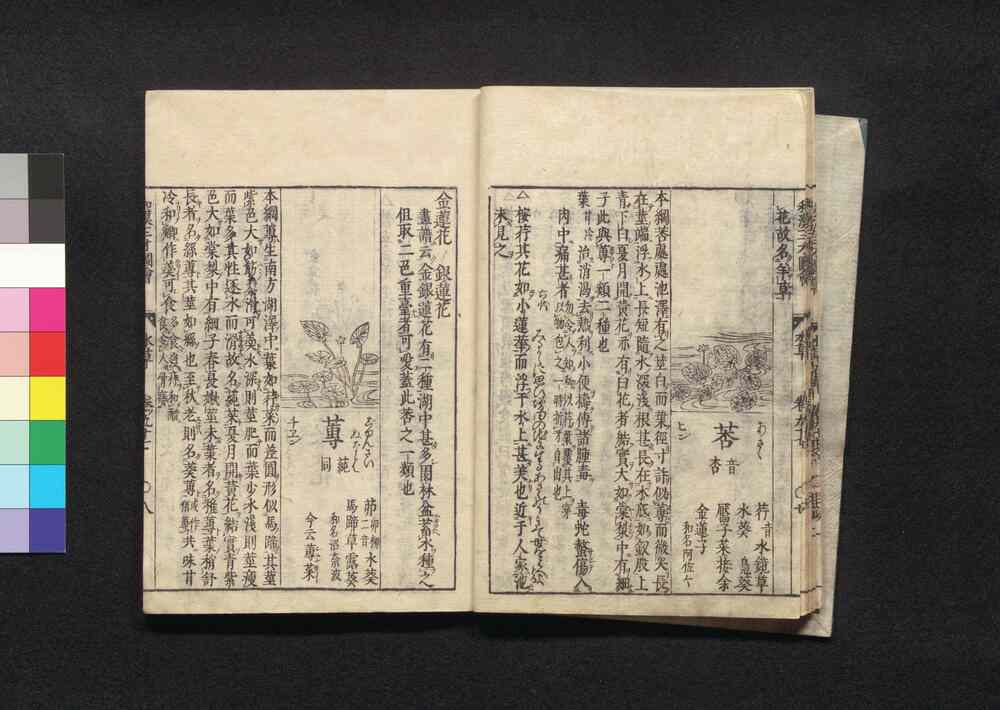 花故名羊草
莕
音杏
あさゝ
ヒン
荇音 水鏡草
水葵 鳧葵
靨子菜 接余
金蓮子
和名阿佐佐
本綱莕處處池澤有之莖白而葉徑寸許似蓴而微尖長
在莖端浮水上長短隨水淺深根甚長在水底如釵股上
青下白夏月開黃花亦有白花者結實大如棠梨中有細
子此與蓴一類二種也
葉甘冷 治消渴去熱利小便擣傅諸腫毒 毒蛇螫傷入
肉中痛甚者
△按荇其花如小蓮華而浮于水上甚美也近于人家池
未見之
金蓮花 銀蓮花
畫譜云金銀蓮花有二種湖中甚多園林盆蓄水種之
但取二色重臺者可愛蓋此莕之一類也
蓴
蒓同
じゆんさい
ぬなは
チユン
茆 水葵
馬蹄草 露葵
和名沼奈波
今云蓴菜
本綱蓴生南方湖澤中葉如荇菜而差圓形似馬蹄其莖
紫色大如筯柔滑可羹水深則莖肥而葉少水淺則莖瘦
而葉多其性逐水而滑故名蒓菜夏月開黃花結實青紫
色大如棠梨中有細子春長嫩莖未葉者名稚蓴葉稍舒
長者名絲蓴其莖如絲也至秋老則名葵蓴 共味甘
冷和鯽作羹可食